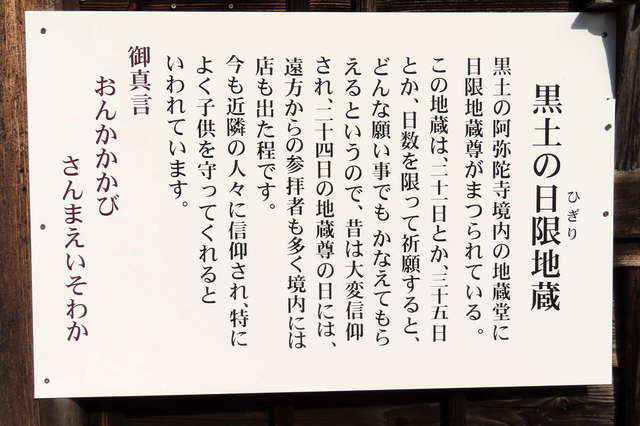 黒土の日限地蔵
ひぎり
黒土の阿弥陀寺境内の地蔵堂に
日限地蔵尊がまつられている。
この地蔵は、二十一日とか、三十五日
とか、日数を限って祈願すると、
どんな願い事でも かなえてもら
えるというので、昔は大変信仰
され、二十四日の地蔵尊の日には、
遠方からの参拝者も多く境内には
店も出た程です。
今も近隣の人々に信仰され、特に
よく子供を守ってくれると
いわれています。
御真言
おんかかかび
さんまえいそわか